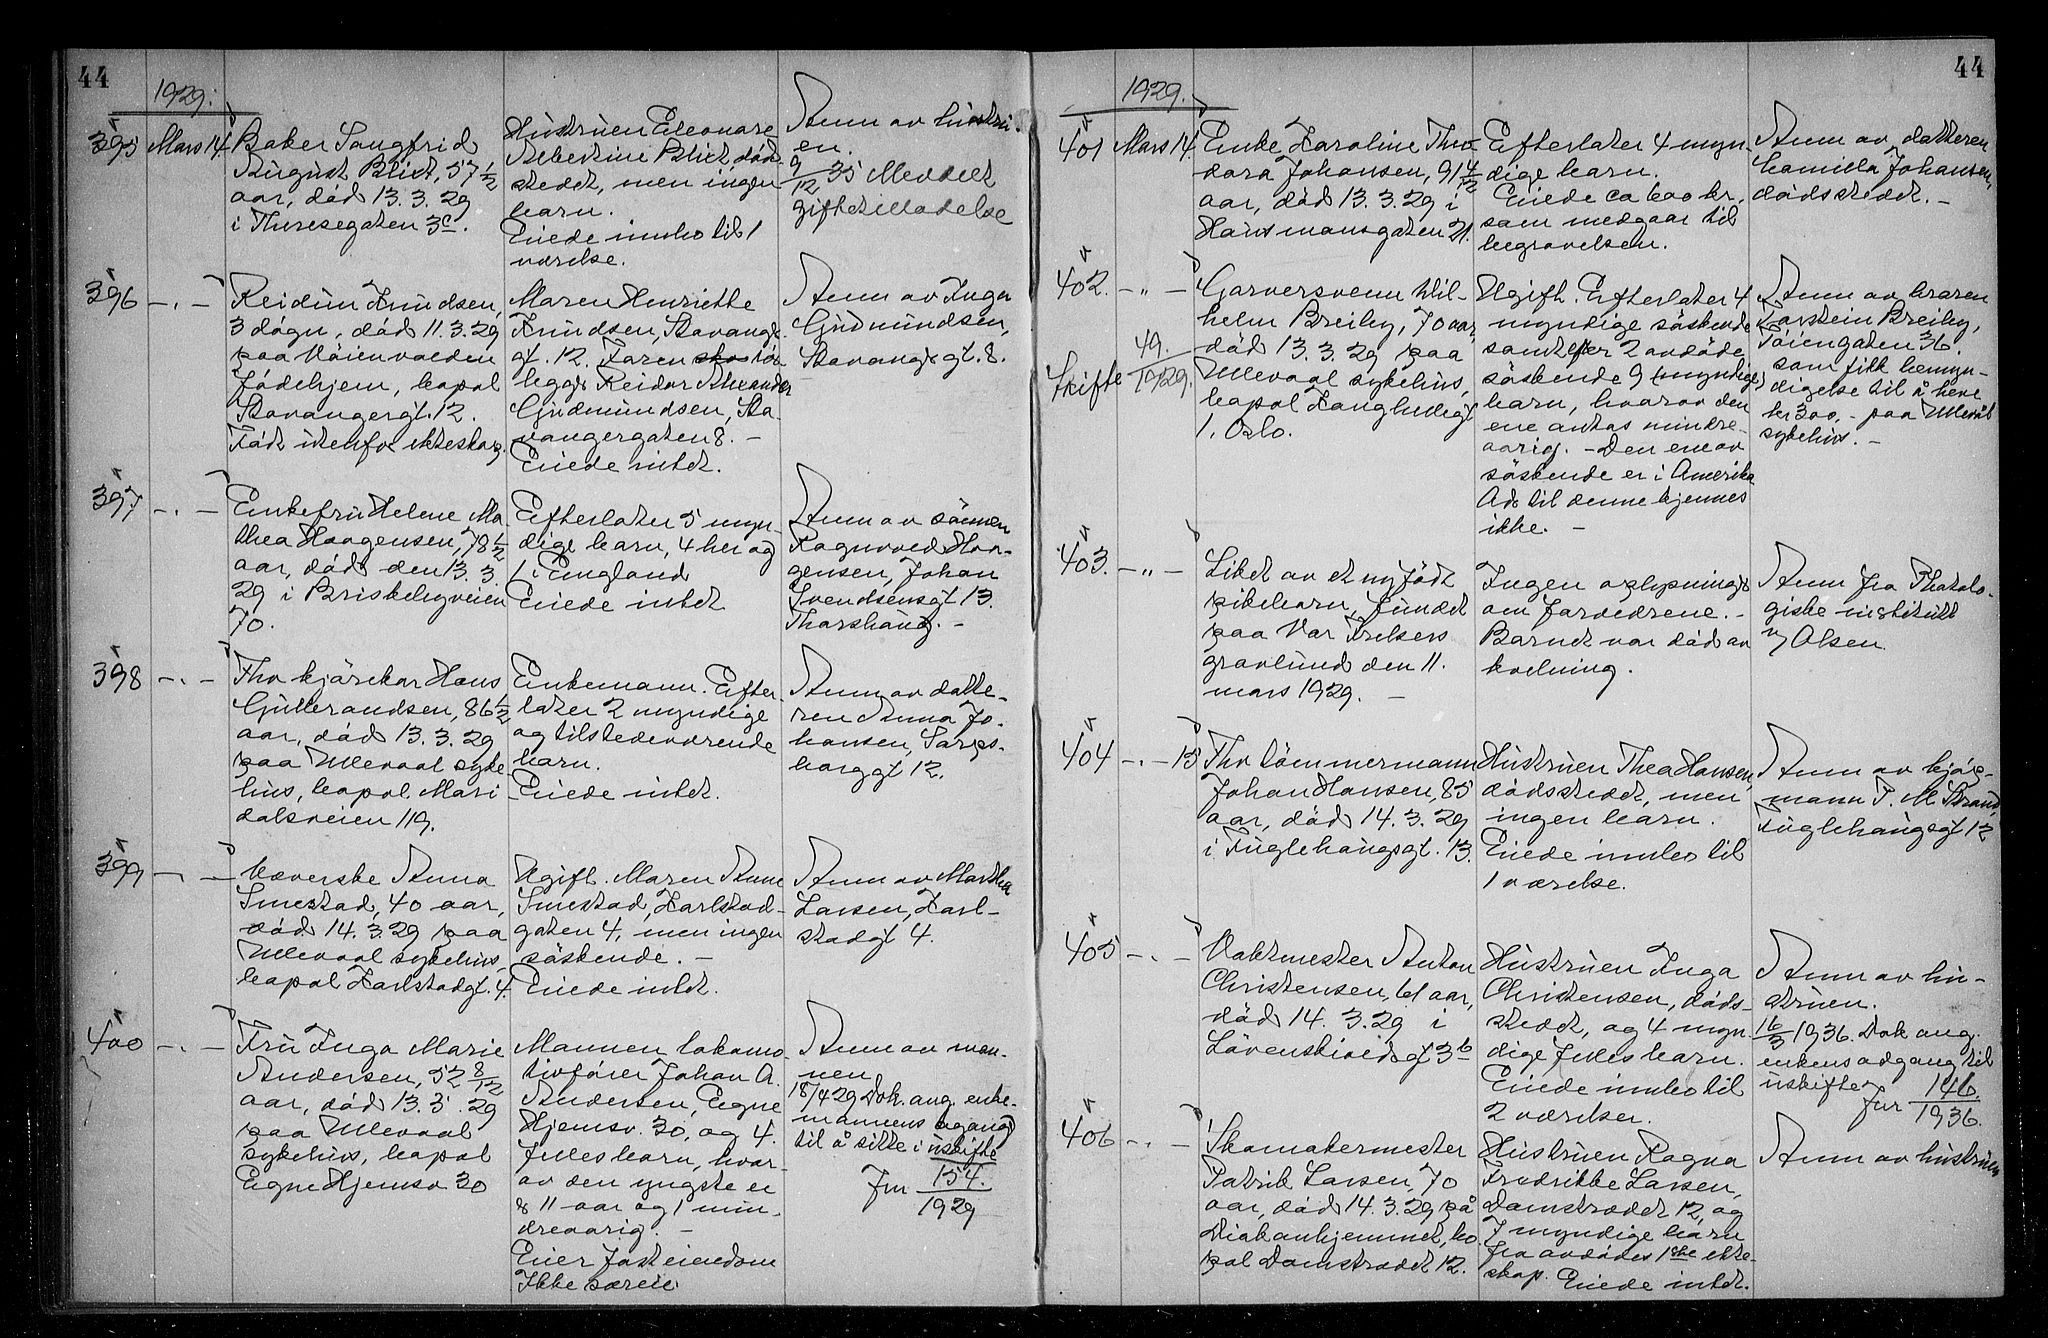 44
1929.
395 Mars 14.
Baker Sangfrid
August Blist, 57 1/2
aar, död 13.3.29
i Theresegaten 3c.
Hustruen Eleonare
Albertine Blist död-
stedet, men ingen
barn.
Eiede innbo til 1
værelse.
Anm av hustru-
en.
9/12 35 Meddelt
giftetilladelse
396 -.-
Reidun Knudsen,
3 døgn, död 11.3.29
paa Vöienvolden
födehjem, bopæl
Stavangergt. 12.
Födt utenfor ekteskap.
Maren Henriette
Knudsen, Stavanger
gt. 12. Faren
Reidar Alexander
Gudmundsen, Sta-
vangergaten 8. -
Eiede intet.
Anm av Inga
Gudmundsen,
Stavanger gt. 8.
397 -.-
Enkefru Helene Ma-
thea Haagensen, 78 1/2
aar, död den 13.3.
29 i Briskebyveien
70.
Efterlater 5 myn-
dige barn, 4 her og
1 i England
Eiede intet
Anm av sönnen
Ragnvald Haa-
gensen, Johan
Svendsensgt 13.
Thorshaug. -
398 -.-
Fhv kjörekar Hans
Gulbrandsen, 86 1/2
aar, död 13.3.29
paa Ullevaal syke
hus, bopæl Mari
dalsveien 119.
Enkemann. Efter-
later 2 myndige
og tilstedeværende
barn.
Eiede intet.
Anm av datte-
ren Anna Jo-
hansen, Sarps-
borggt 12.
399 -.-
Væverske Anna
Smestad, 40 aar,
död 14.3.29 paa
Ullevaal sykehus,
bopæl Karlstadgt. 4.
Ugift. Maren Anne
Smestad, Karlstad-
gaten 4, men ingen
söskende. -
Eiede intet.
Anm av Martha
Larsen, Karl-
stadgt 4.
400 -.-
Fru Inga Marie
Andersen, 52 8/12
aar, död 13.3.29
paa Ullevaal
sykehus, bopæl
Egne Hjemsv 30
Mannen lokomo-
tivförer Johan A.
Andersen, Egne
Hjemsv. 30, og 4.
felles barn, hvor-
av den yngste er
11 aar og 1 min-
dreaarig. -
Eier fast eiendom
Ikke særeie
Anm av man-
nen
18/4 29 Dok. ang. enke-
mannens adgang
til å sitte i uskifte
Jnr 154./1929
44
1929.
401 Mars 14.
Enke Karoline Theo-
dora Johansen, 91 4/12
aar, död 13.3.29 i
Hausmansgaten 21.
Efterlater 4 myn-
dige barn.
Eiede ca 600 kr.,
som medgaar til
begravelsen.
Anm av datteren
Camilla Johansen,
dödsstedet. -
402. -"-
Skifte 49./1929.
Garversvenn Wil-
helm Breiby, 70 aar,
död 13.3.29 paa
Ullevaal sykehus,
bopæl
1, Oslo.
Ugift. Efterlater 4
myndige söskende
samt efter 2 avdöde
söskende 9 (myndige)
barn, hvorav den
ene antas mindre-
aarig. - Den ene av
söskende er i Amerika
Adr til denne kjennes
ikke. -
Anm av broren
Karstein Breiby,
Töiengaten 36.
som fikk bemyn-
digelse til å heve
kr 300,- paa Ullevål
sykehus. -
403. -"-
Liket av et nyfödt
pikebarn, fundet
paa Vor Frelsers
gravlund den 11.
mars 1929. -
Ingen oplysninger
om forældrene. -
Barnet var död av
kvelning.
Anm fra Pathalo-
giske institutt
v/ Olsen.
404 -.- 15
Fhv tömmermann
Johan Hansen, 85
aar, död 14.3.29
i Fuglehaugsgt. 13.
Hustruen Thea Hansen,
dödsstedet, men
ingen barn.
Eiede innbo til
1 værelse.
Anm av kjöp-
mann P. M. Strand,
Fuglehaugsgt 12
405 -.-
Vaktmester Anton
Christensen, 61 aar,
död 14.3.29 i
Lövenskioldsgt 3b
Hustruen Inga
Christensen, döds-
stedet, og 4 myn-
dige felles barn.
Eiede innbo til
2 værelser.
Anm av hu-
struen.
16/3 1936. Dok ang.
enkens adgang til
uskifte
Jnr 146./1936.
406 -.-
Skomakermester
Patrik Larsen, 70
aar, död 14.3.29 på
Diakonhjemmet, bo
pæl Damstrædet 12.
Hustruen Ragna
Fredrikke Larsen,
Damstrædet 12, og
7 myndige barn
fra avdödes 1ste ekte-
skap. Eiede intet.
Anm av hustruen